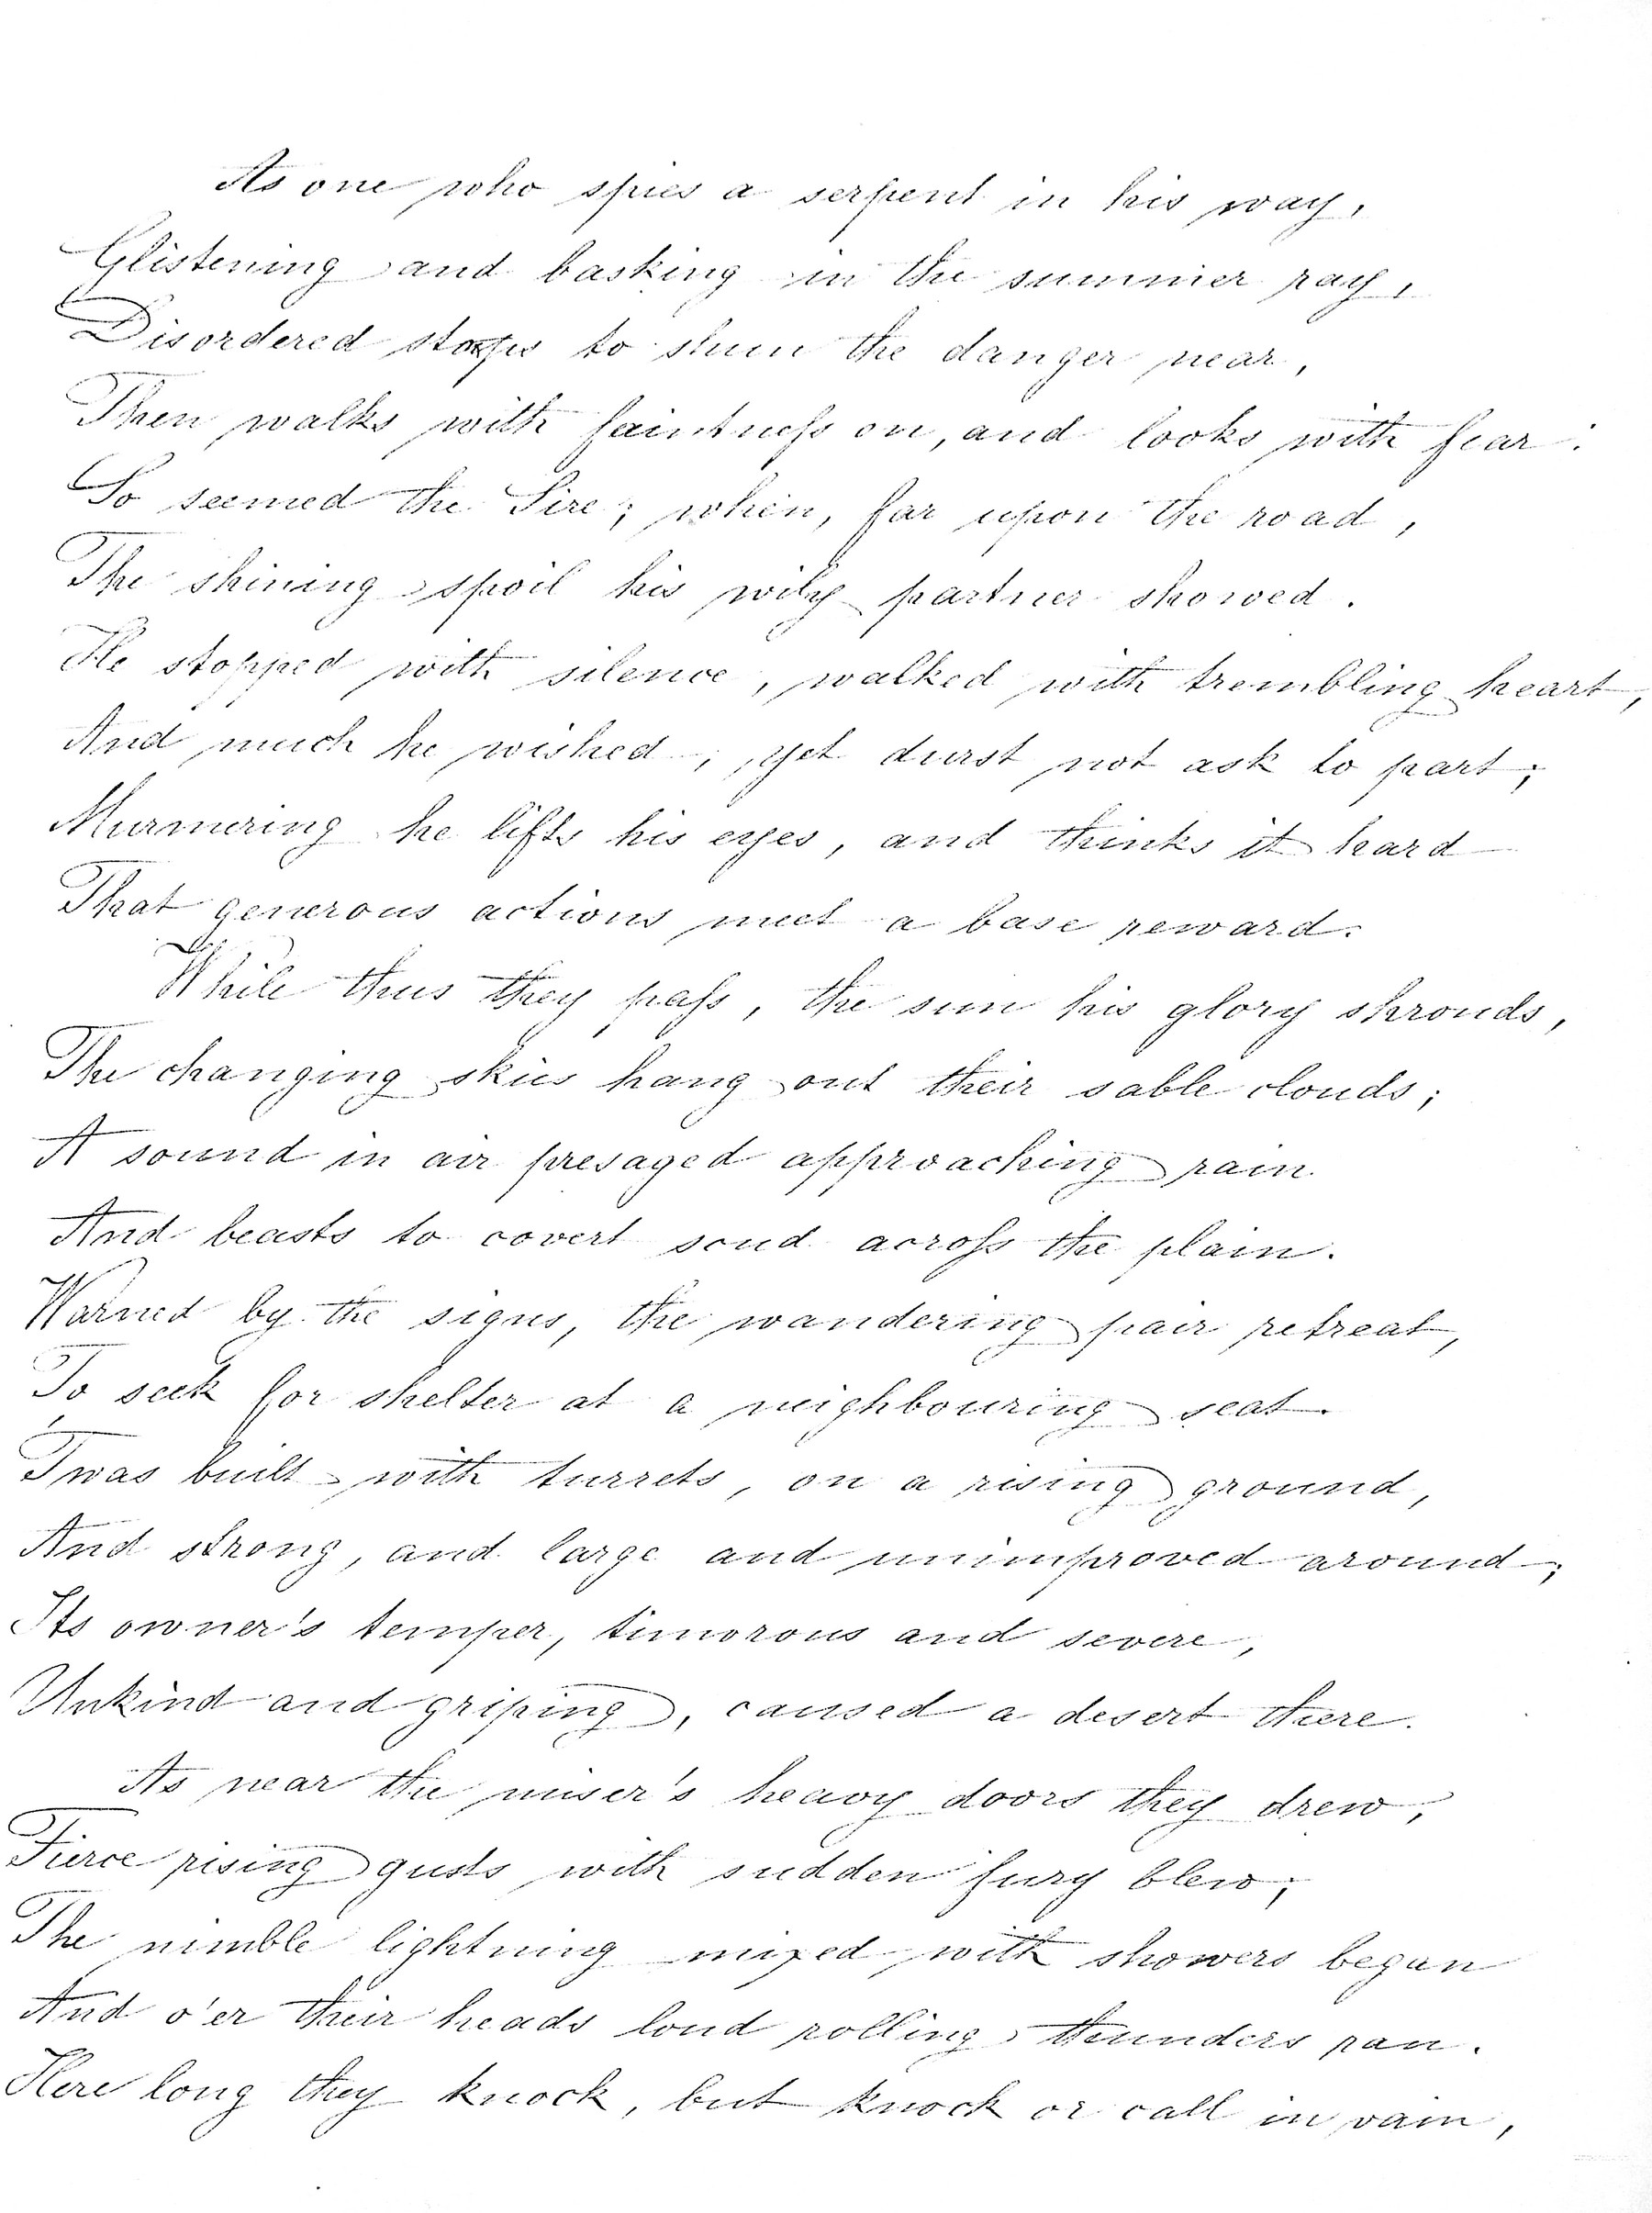 As one who spies a serpent in his way,
Glistening and basking in the summer ray,
Disordered stops to shun the danger near,
Then walks with faintness on, and looks with fear:
So seemed the Sire; when, far upon the road,
The shining spoil his wily partner showed.
He stopped with silence, walked with trembling heart,
And much he wished, yet durst not ask to part;
Murmering he lifts his eyes, and thinks it hard
That generous actions meet a base reward.
While thus they pass, the sun his glory shrouds,
The changing skies hang out their sable clouds;
A sound in air presaged approaching rain
And beasts to covert scud across the plain.
Warned by the signs, the wandering pair retreat,
To seek for shelter at a neighbouring seat.
'Twas built with turrets, on a rising ground,
And strong, and large and unimproved around;
Its owner's temper, timorous and severe,
Unkind and griping, caused a desert there.
As near the miser's heavy doors they drew,
Fierce rising gusts with sudden fury blew;
The nimble lightning mixed with showers began
And o'er their heads loud rolling thunders ran.
Here long they knock, but knock or call in vain,